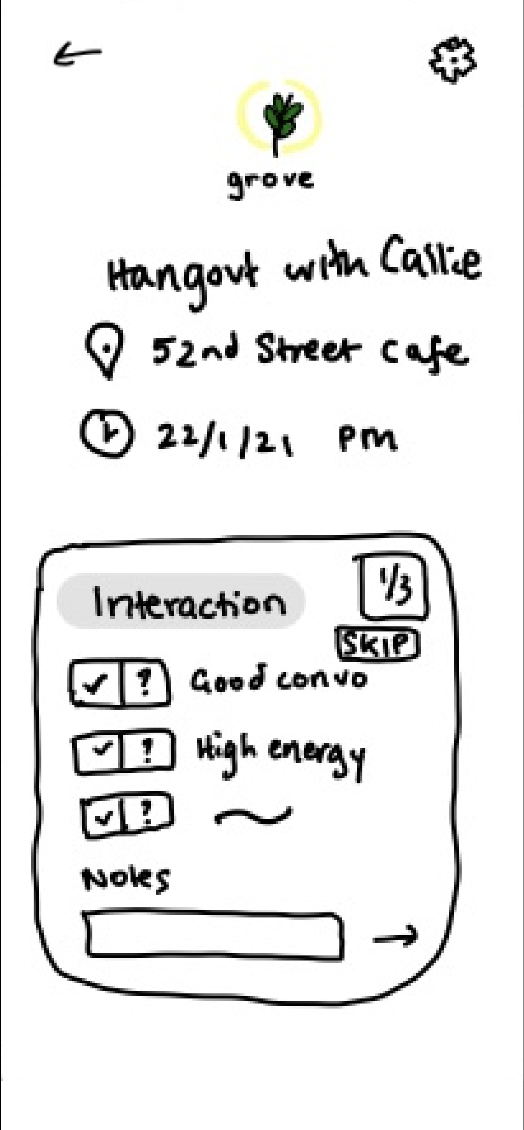 grove
Hangout with Callie
52nd Street Cafe
22/1/21 PM
Interaction
1/3
SKIP
✓ ? Good convo
✓ ? High energy
✓ ?
Notes